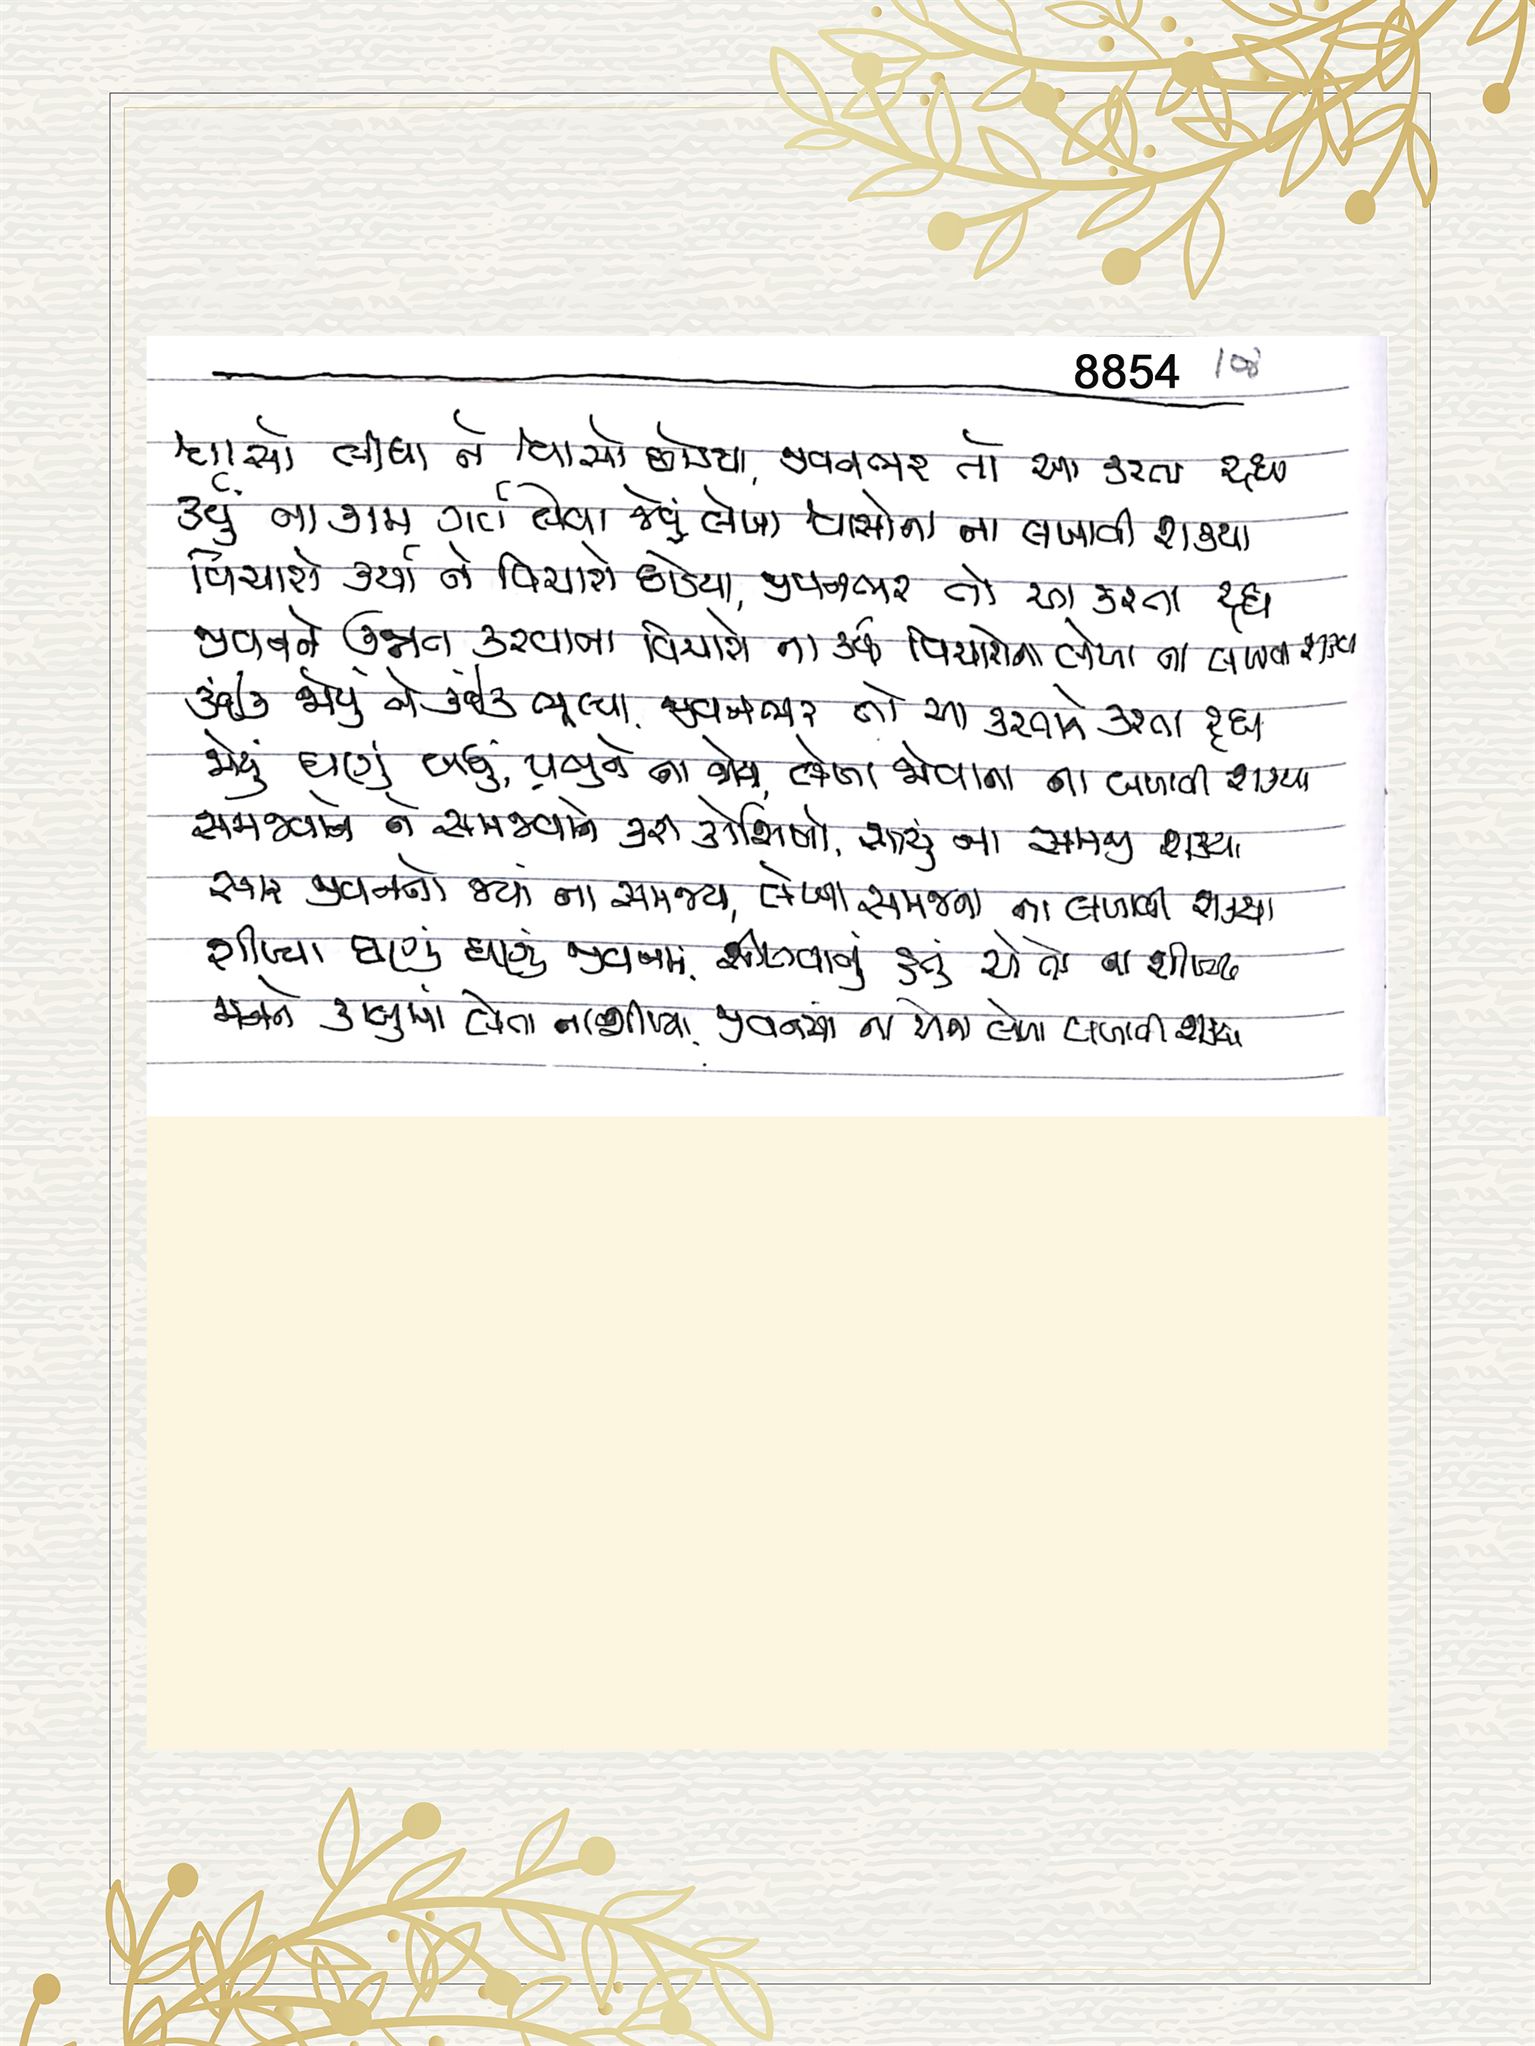 8854
શ્વાસો લીધા ને શ્વાસો છોડયા, જીવનભર તો આ કરતા રહ્યા
કર્યું ના કામ ગર્વ લેવા જેવું લેખા શ્વાસોના ના લખાવી શકયા
વિચારો કર્યા ને વિચારો છોડયા, જીવનભર તો આ કરતા રહ્યા
જીવનને ઉન્નત કરવાના વિચારો ના કર્યા વિચારોના લેખા ના લખાવી શકયા
કંઈક જોયું ને કંઈક ભૂલ્યા, જીવનભર તો આ કરતાને કરતા રહ્યા
જોયું ઘણું બધું, પ્રભુને ના જોયા, લેખા જોવાના ના લખાવી શકયા
સમજવાને ને સમજવાને કરી કોશિશો, સાચું ના સમજી શકયા
સાર જીવનનો જ્યાં ના સમજ્યા, લેખા સમજના ના લખાવી શકયા
શીખ્યા ઘણું ઘણું જીવનમાં, શીખવાનું હતું એ તો ના શીખ્યા
મનને કાબુમાં લેતા ના શીખ્યા, જીવનમાં ના એના લેખા લખાવી શકયા